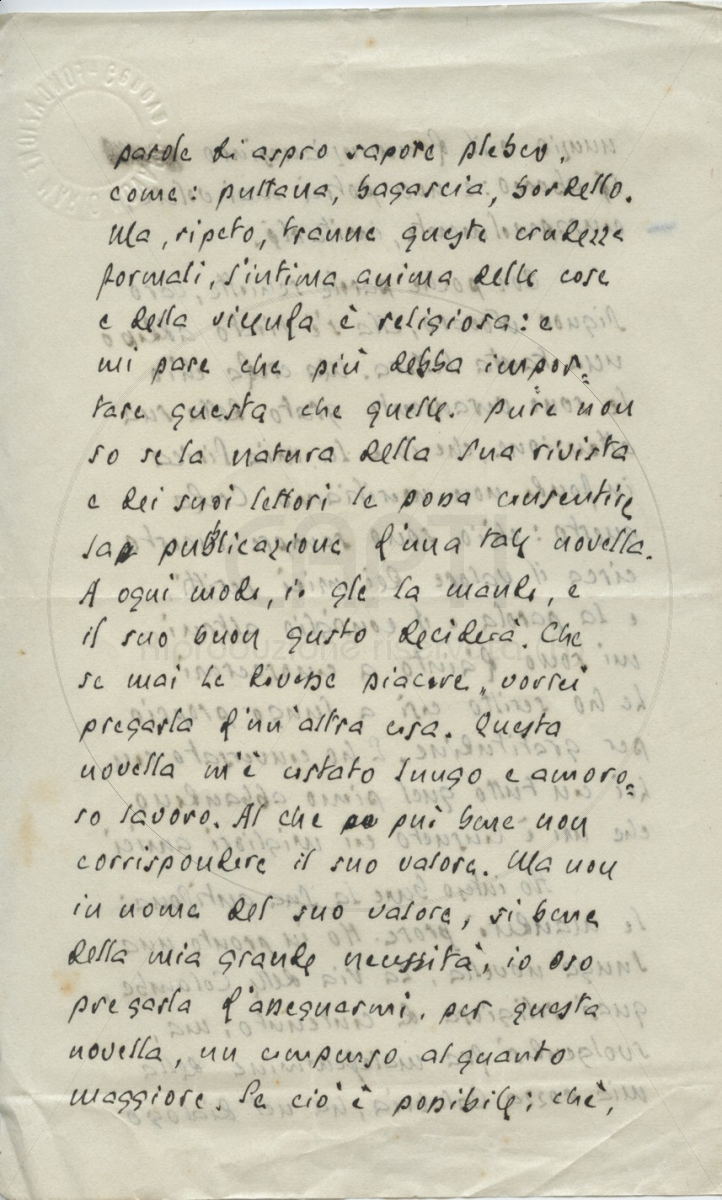 parole di aspro sapore plebeo,
come: puttana, bagascia, bordello.
Ma, ripeto, tranne queste crudezze
formali, l'intima anima delle cose
e della vicenda è religiosa: e
mi pare che più debba impor=
tare questa che quelle. Pure non
so se la natura della Sua rivista
e dei suoi lettori le possa consentire
la pubblicazione d'una tale novella.
A ogni modo, io gle la mando, e
il suo buon gusto deciderà. Che
se mai Le dovesse piacere, vorrei
pregarla d'un'altra cosa. Questa
novella m'è costato lungo e amoro=
so lavoro. Al che può bene non
corrispondere il suo valore. Ma non
in nome del suo valore, si bene
della mia grande necessità, io oso
pregarla d'assegnarmi, per questa
novella, un compenso alquanto
maggiore. Se ciò è possibile; chè,